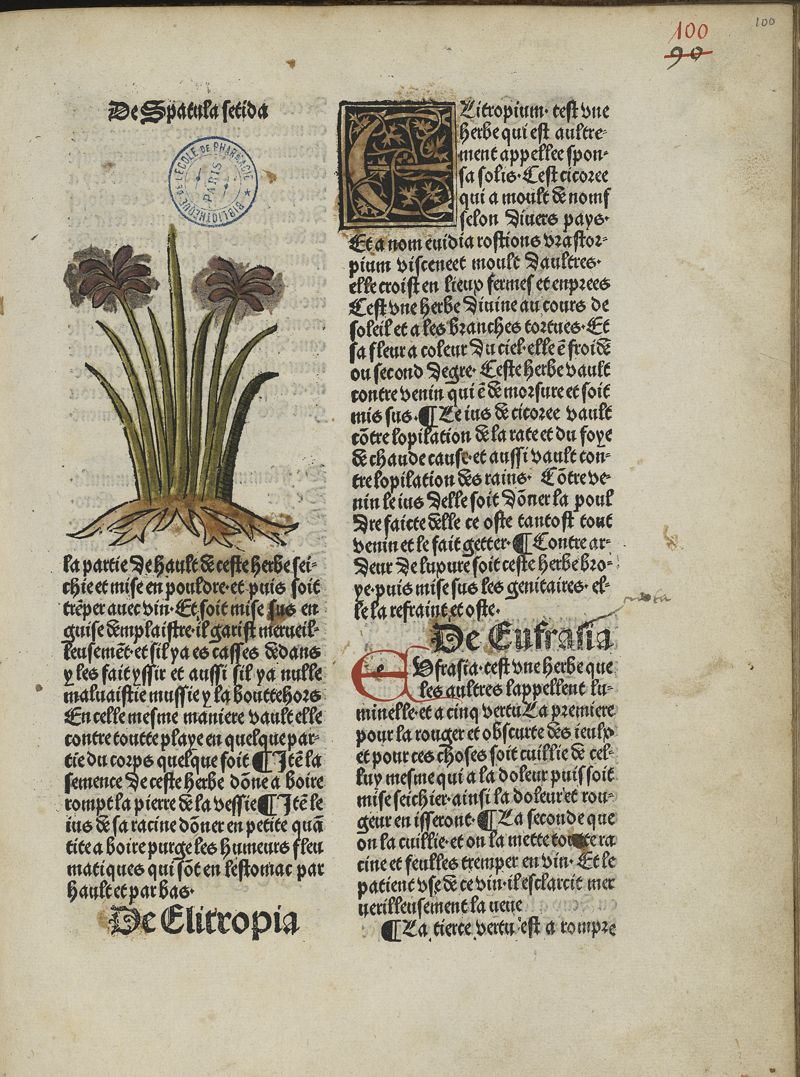 100
100
90
De Spatula fetida
BIBLIOTHEQUE DE L'ECOLE DE PHARMACIE
PARIS
la partie De hault de ceste herbe sei-
chie et mise en pouldre· et puis soit
trẽper auec vin· Et soit mise sus en
guise demplaistre· il garist merueil-
leusemẽt· et sil ya es casses dedans
y les fait yssir et aussi sil ya nulle
maluaistie mussie y la bouttehors
En celle mesme maniere vault elle
contre toutte playe en quelque par-
tie du corps quelque soit ¶ Itẽ la
semence De ceste herbe dõne a boire
rompt la pierre de la vessie ¶ Itẽ le
ius de sa racine dõner en petite quã
tite a boire purge les humeurs fleu
matiques qui sõt en lestomac par
hault et par bas·
De Elitropia
ELitropium· cest vne
herbe qui est aultre-
ment appellee spon-
sa solis· Cest cicoree
qui a moult de noms
selon Diuers pays·
Et a nom euidia rostions vrastor-
pium visceneet moult Daultres·
elle croist en lieux fermes et enprees
Cest vne herbe Diuine au cours de
soleil et a les branches tortues· Et
sa fleur a coleur Du ciel· elle ẽ froide
ou second Degre· Ceste herbe vault
contre venin qui ẽ de morsure et soit
mis sus· ¶ Le ius de cicoree vault
cõtre lopilation de la rate et du foye
de chaude cause· et aussi vault con-
tre lopilation des rains· Cõtre ve-
nin le ius Delle soit Dõner la poul
Dre faicte delle ce oste tantost tout
venin et le fait getter· ¶ Contre ar-
Deur De lupure soit ceste herbe bro-
ye· puis mise sus les genitaires· el-
le la refraint et oste·
De Eufrasia
EVfrasia· cest vne herbe que
les aultres lappellent lu-
minelle· et a cinq vertu La premiere
pour la rouger et obscurte des ieulx
et pour ces choses soit cuillie de cel-
luy mesme qui a la doleur puis soit
mise seichier· ainsi la doleur et rou-
geur en isseront· ¶ La seconde que
on la cuillie· et on la mette toutce ra
cine et feulles tremper en vin· Et le
patient vse de ce vin· il esclarcit mer
uerilleusement la veue
¶ La tierce vertu est a rompre